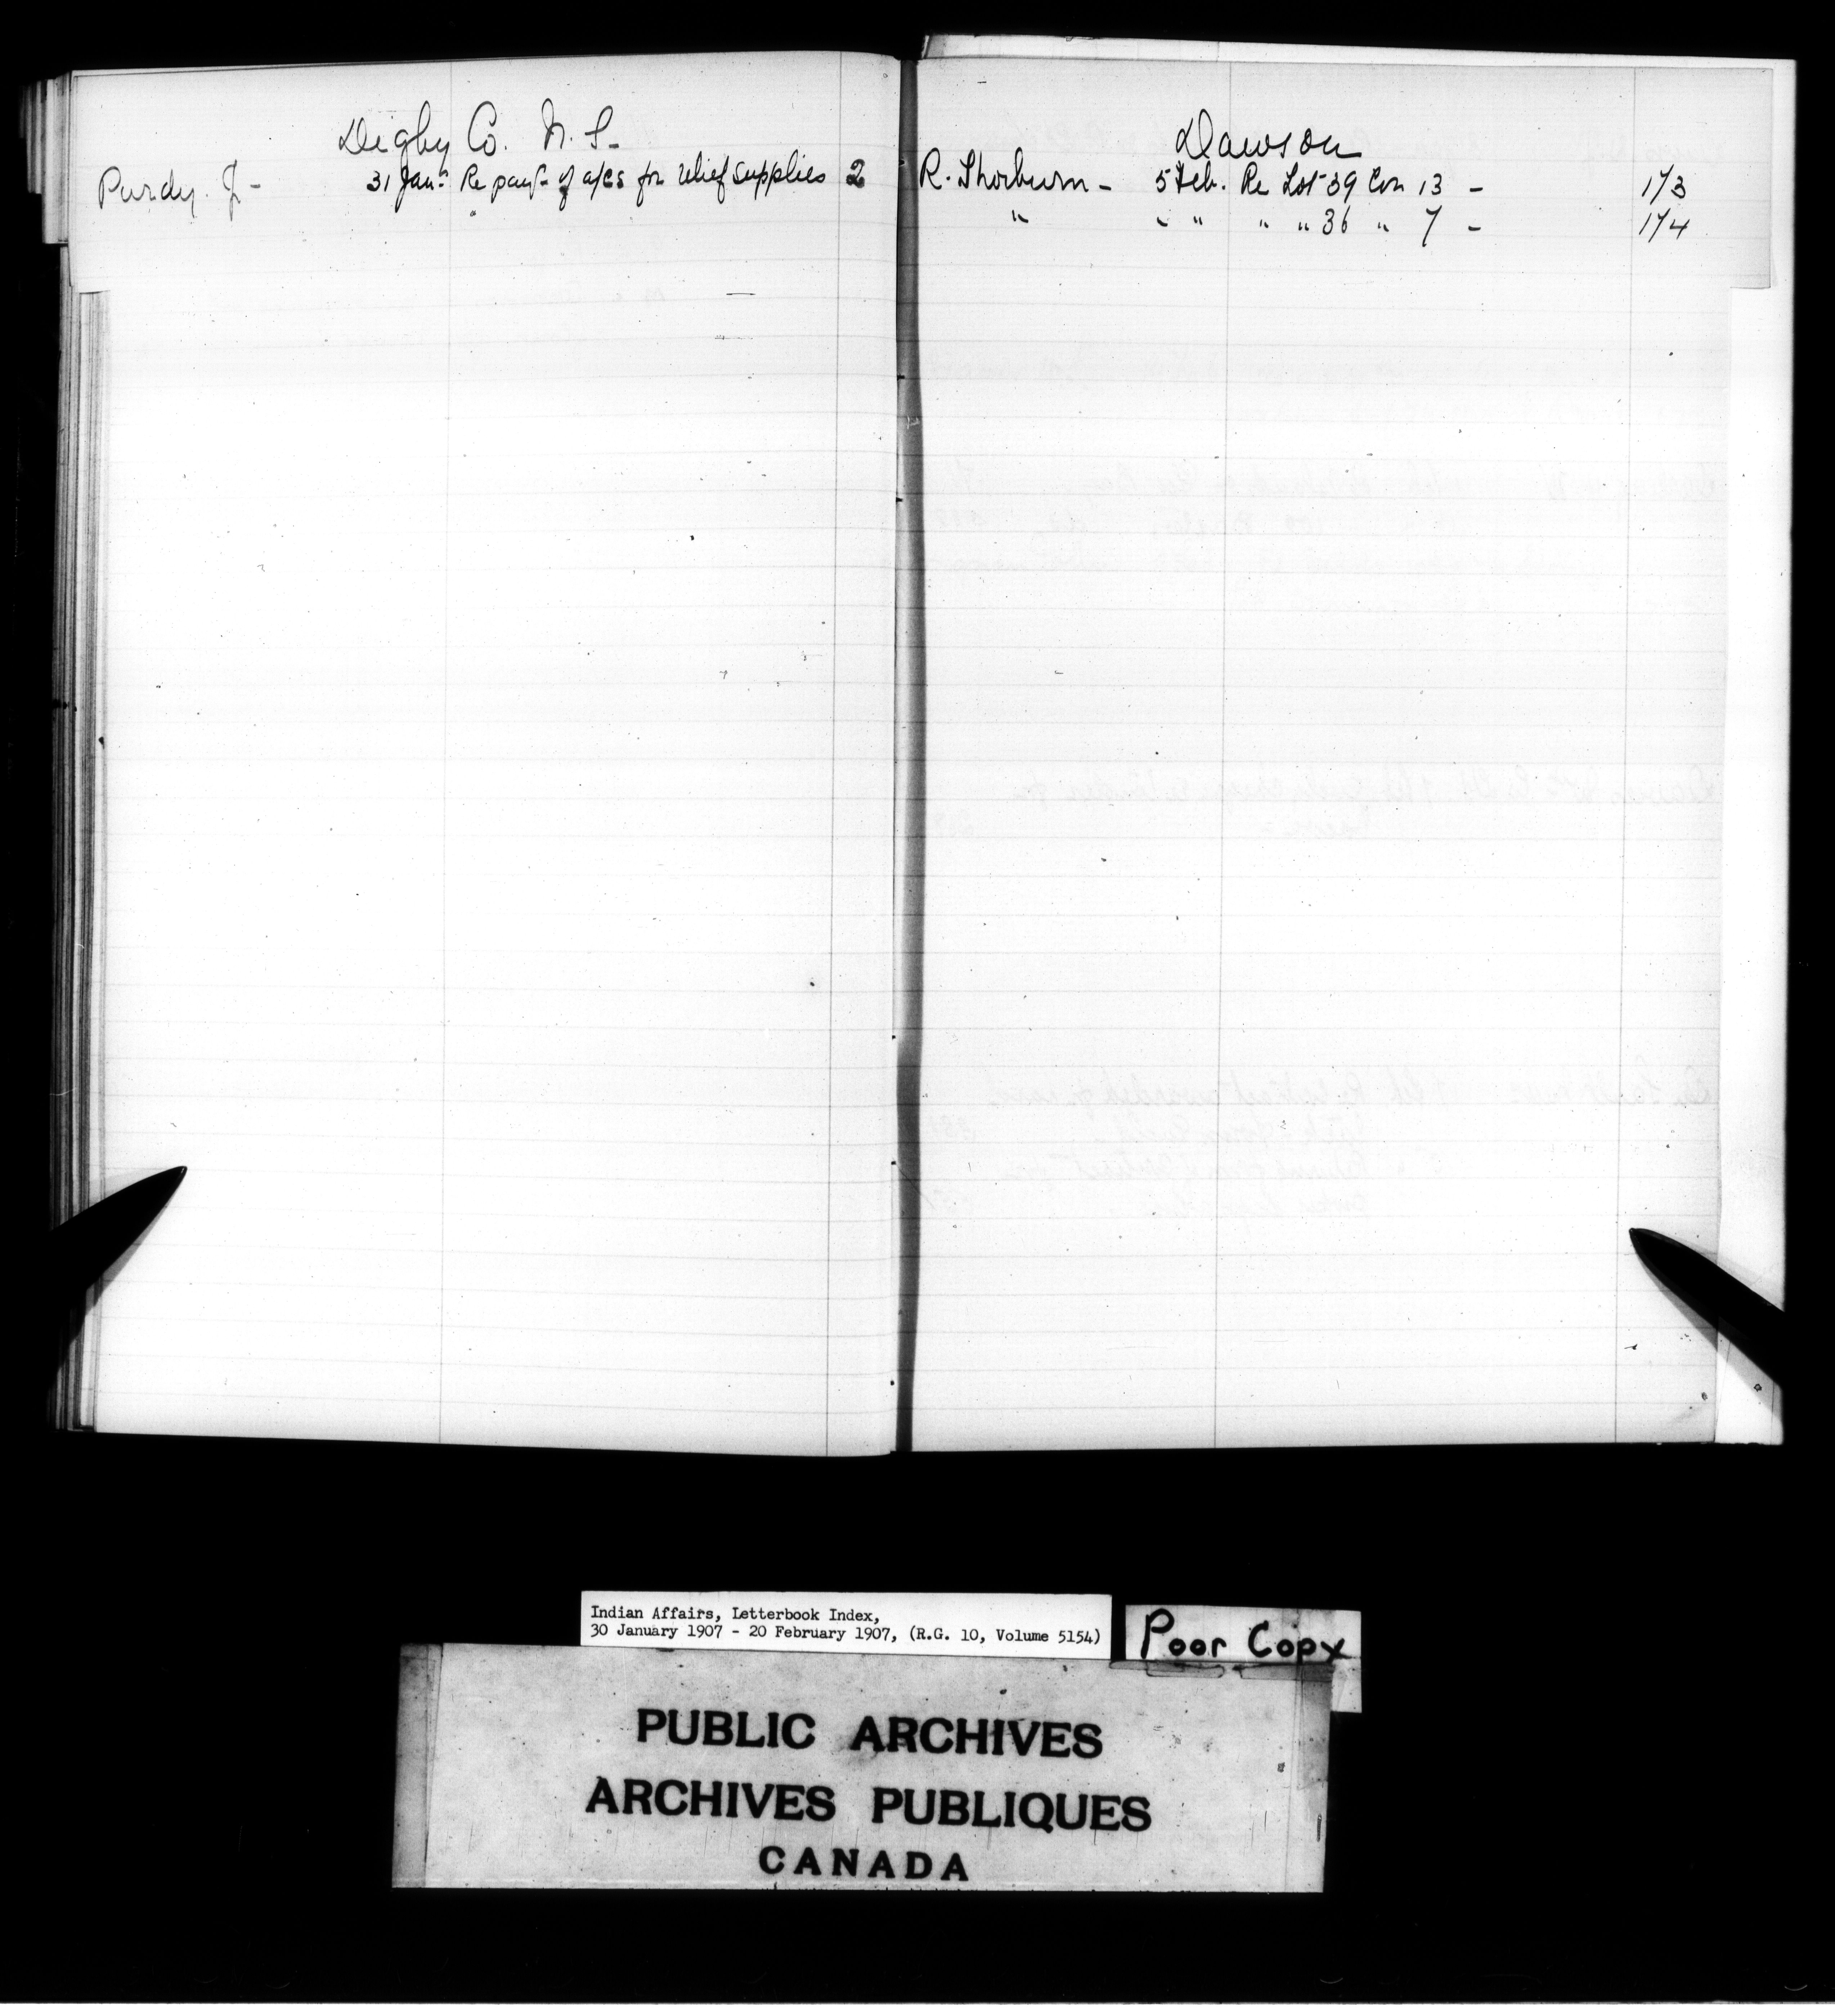 Digby Co. N. S.
Purdy. J - 31 Jan. Re payt of a/cs for relief supplies 2
Dawson
R. Thorburn - 5 Feb. Re Lot 39 Con 13 - 173
" " " " " 36 " 7 - 174
Indian Affairs, Letterbook Index,
30 January 1907 - 20 February 1907, (R.G. 10, Volume 5154)
Poor Copy
PUBLIC ARCHIVES
ARCHIVES PUBLIQUES
CANADA